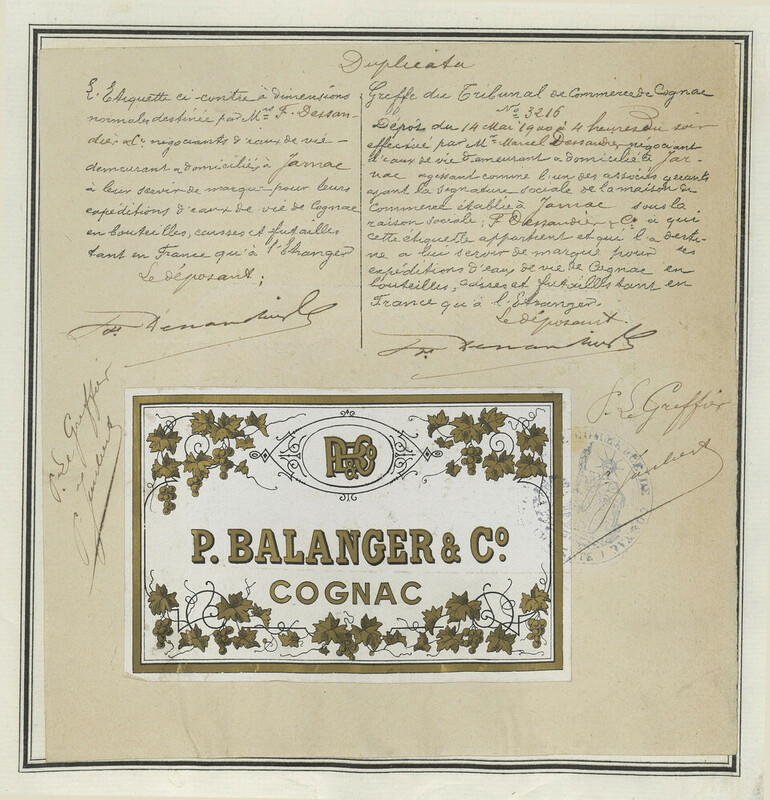 Duplicata
L'Etiquette ci-contre à dimensions
normales destinée par Mrs F. Dessan-
dier & Co négociants d'eaux de vie -
demeurant & domiciliés à Jarnac
à leur servir de marque pour leurs
expéditions d'eaux de vie de Cognac
en bouteilles, caisses et futailles
tant en France qu'à l'Etranger
Le déposant;
Greffe du Tribunal de Commerce de Cognac
No 3216
Dépôt du 14 Mai 1900 à 4 heures du soir
effectué par Mr Marcel Dessandier négociant
d'eaux de vie demeurant & domicilié à Jar-
nac agissant comme l'un des associés gérants
ayant la signature sociale de la maison de
Commerce établie à Jarnac sous la
raison sociale; F. Dessandier & Co à qui
cette étiquette appartient et qui l'a desti-
né à lui servir de marque pour ses
expéditions d'eaux de vie de Cognac en
bouteilles, caisses et futailles tant en
France qu'à l'Etranger
Le déposant.
P. Le Greffier
P. Le Greffier
PB&Co
P. BALANGER & Co
COGNAC